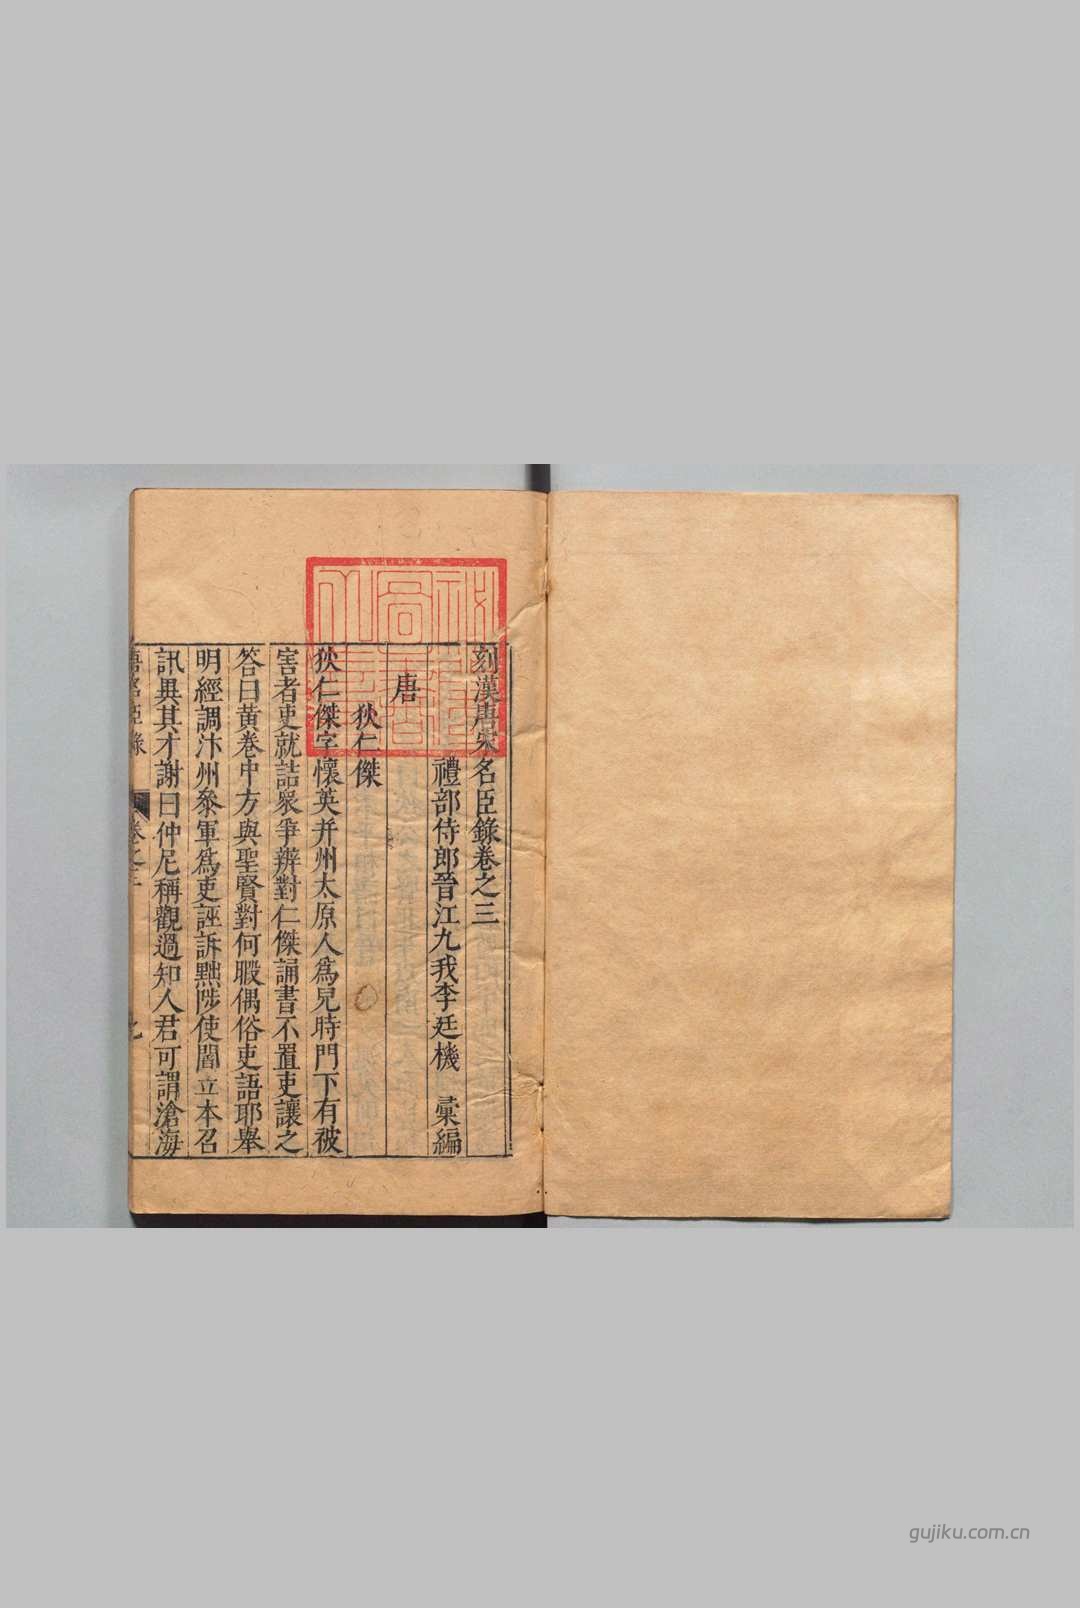 刻漢唐宋名臣錄卷之三
禮部侍郎晉江九我李廷機 彙編
唐
狄仁傑
狄仁傑字懷英并州太原人爲兒時門下有被
害者吏就詰衆爭辨對仁傑誦書不置吏讓之
答曰黃卷中方與聖賢對何暇偶俗吏語耶舉
明經調汴州參軍爲吏誣訴黜陟使閻立本召
訊異其才謝曰仲尼稱觀過知人君可謂滄海
唐名臣錄 卷之三
gujiku.com.cn